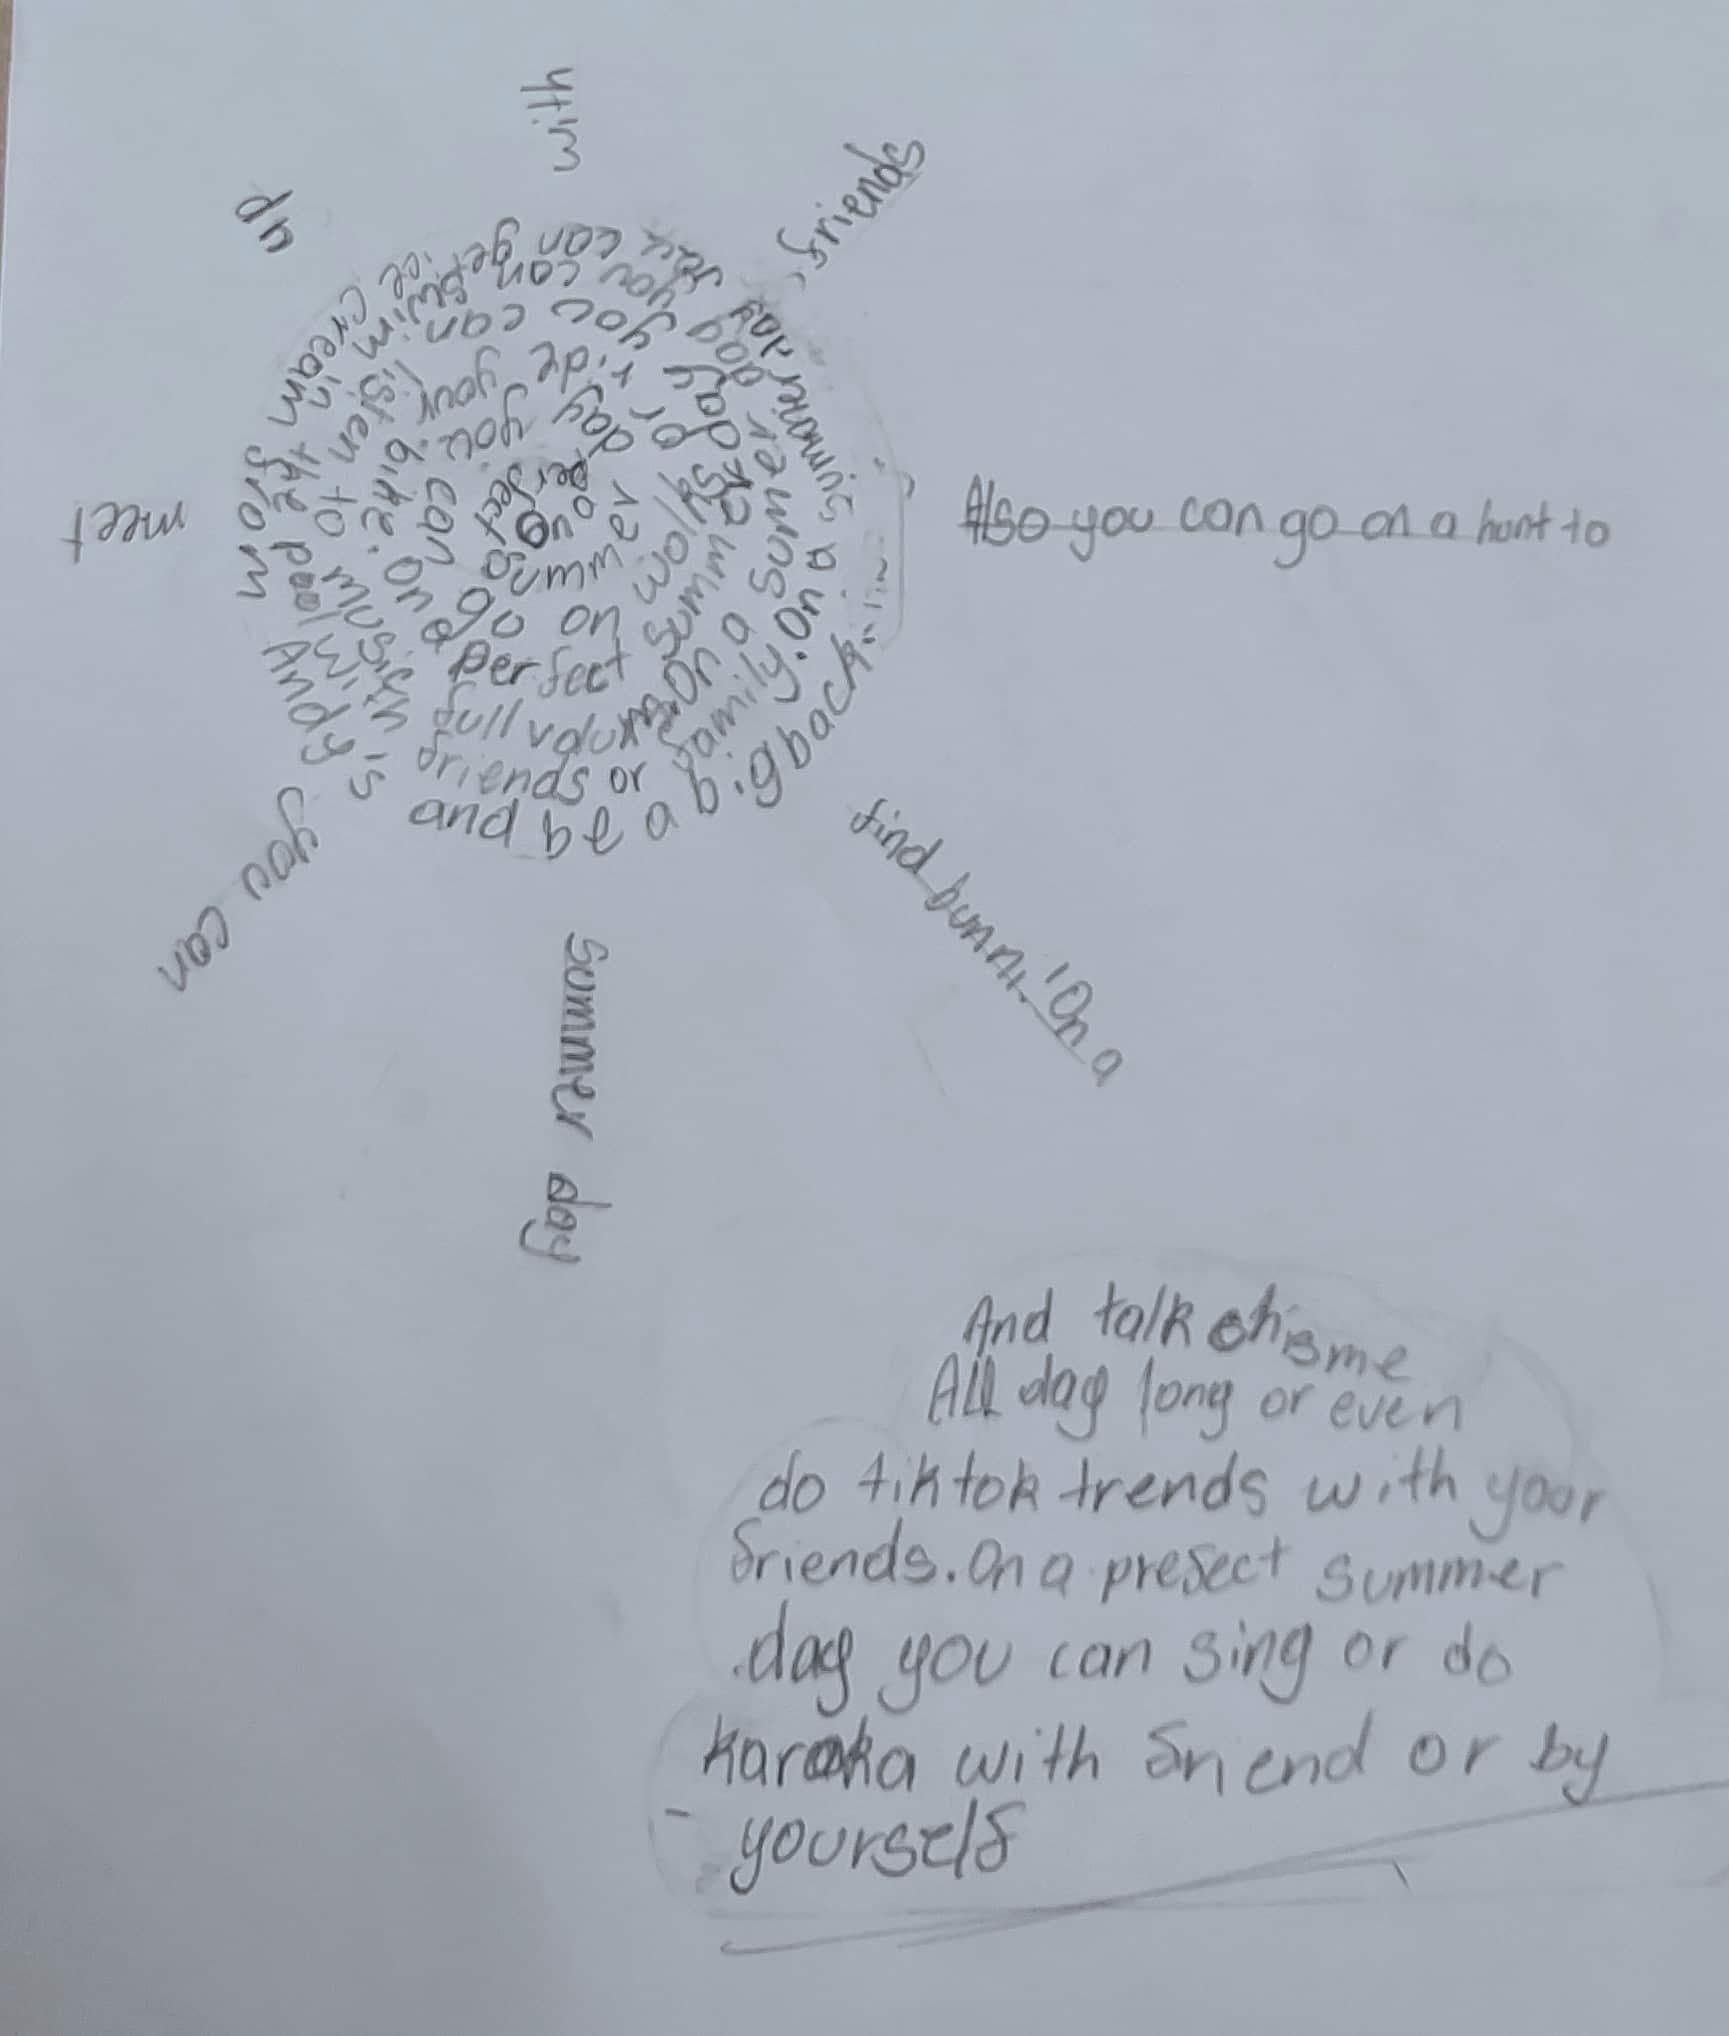 On a perfect summer day you can go on a walk or ride your bike. On a perfect summer day you can listen to music full volume. On a summer day you can swim in the pool friends or family. On a summer day you can get ice cream from Andy's and be a big back
Also you can go on a hunt to
On a
summer day
you can
meet
up
with
friends
And talk chisme
All day long or even
do tiktok trends with your
friends. On a prefect summer
day you can sing or do
with friend or by
yourself